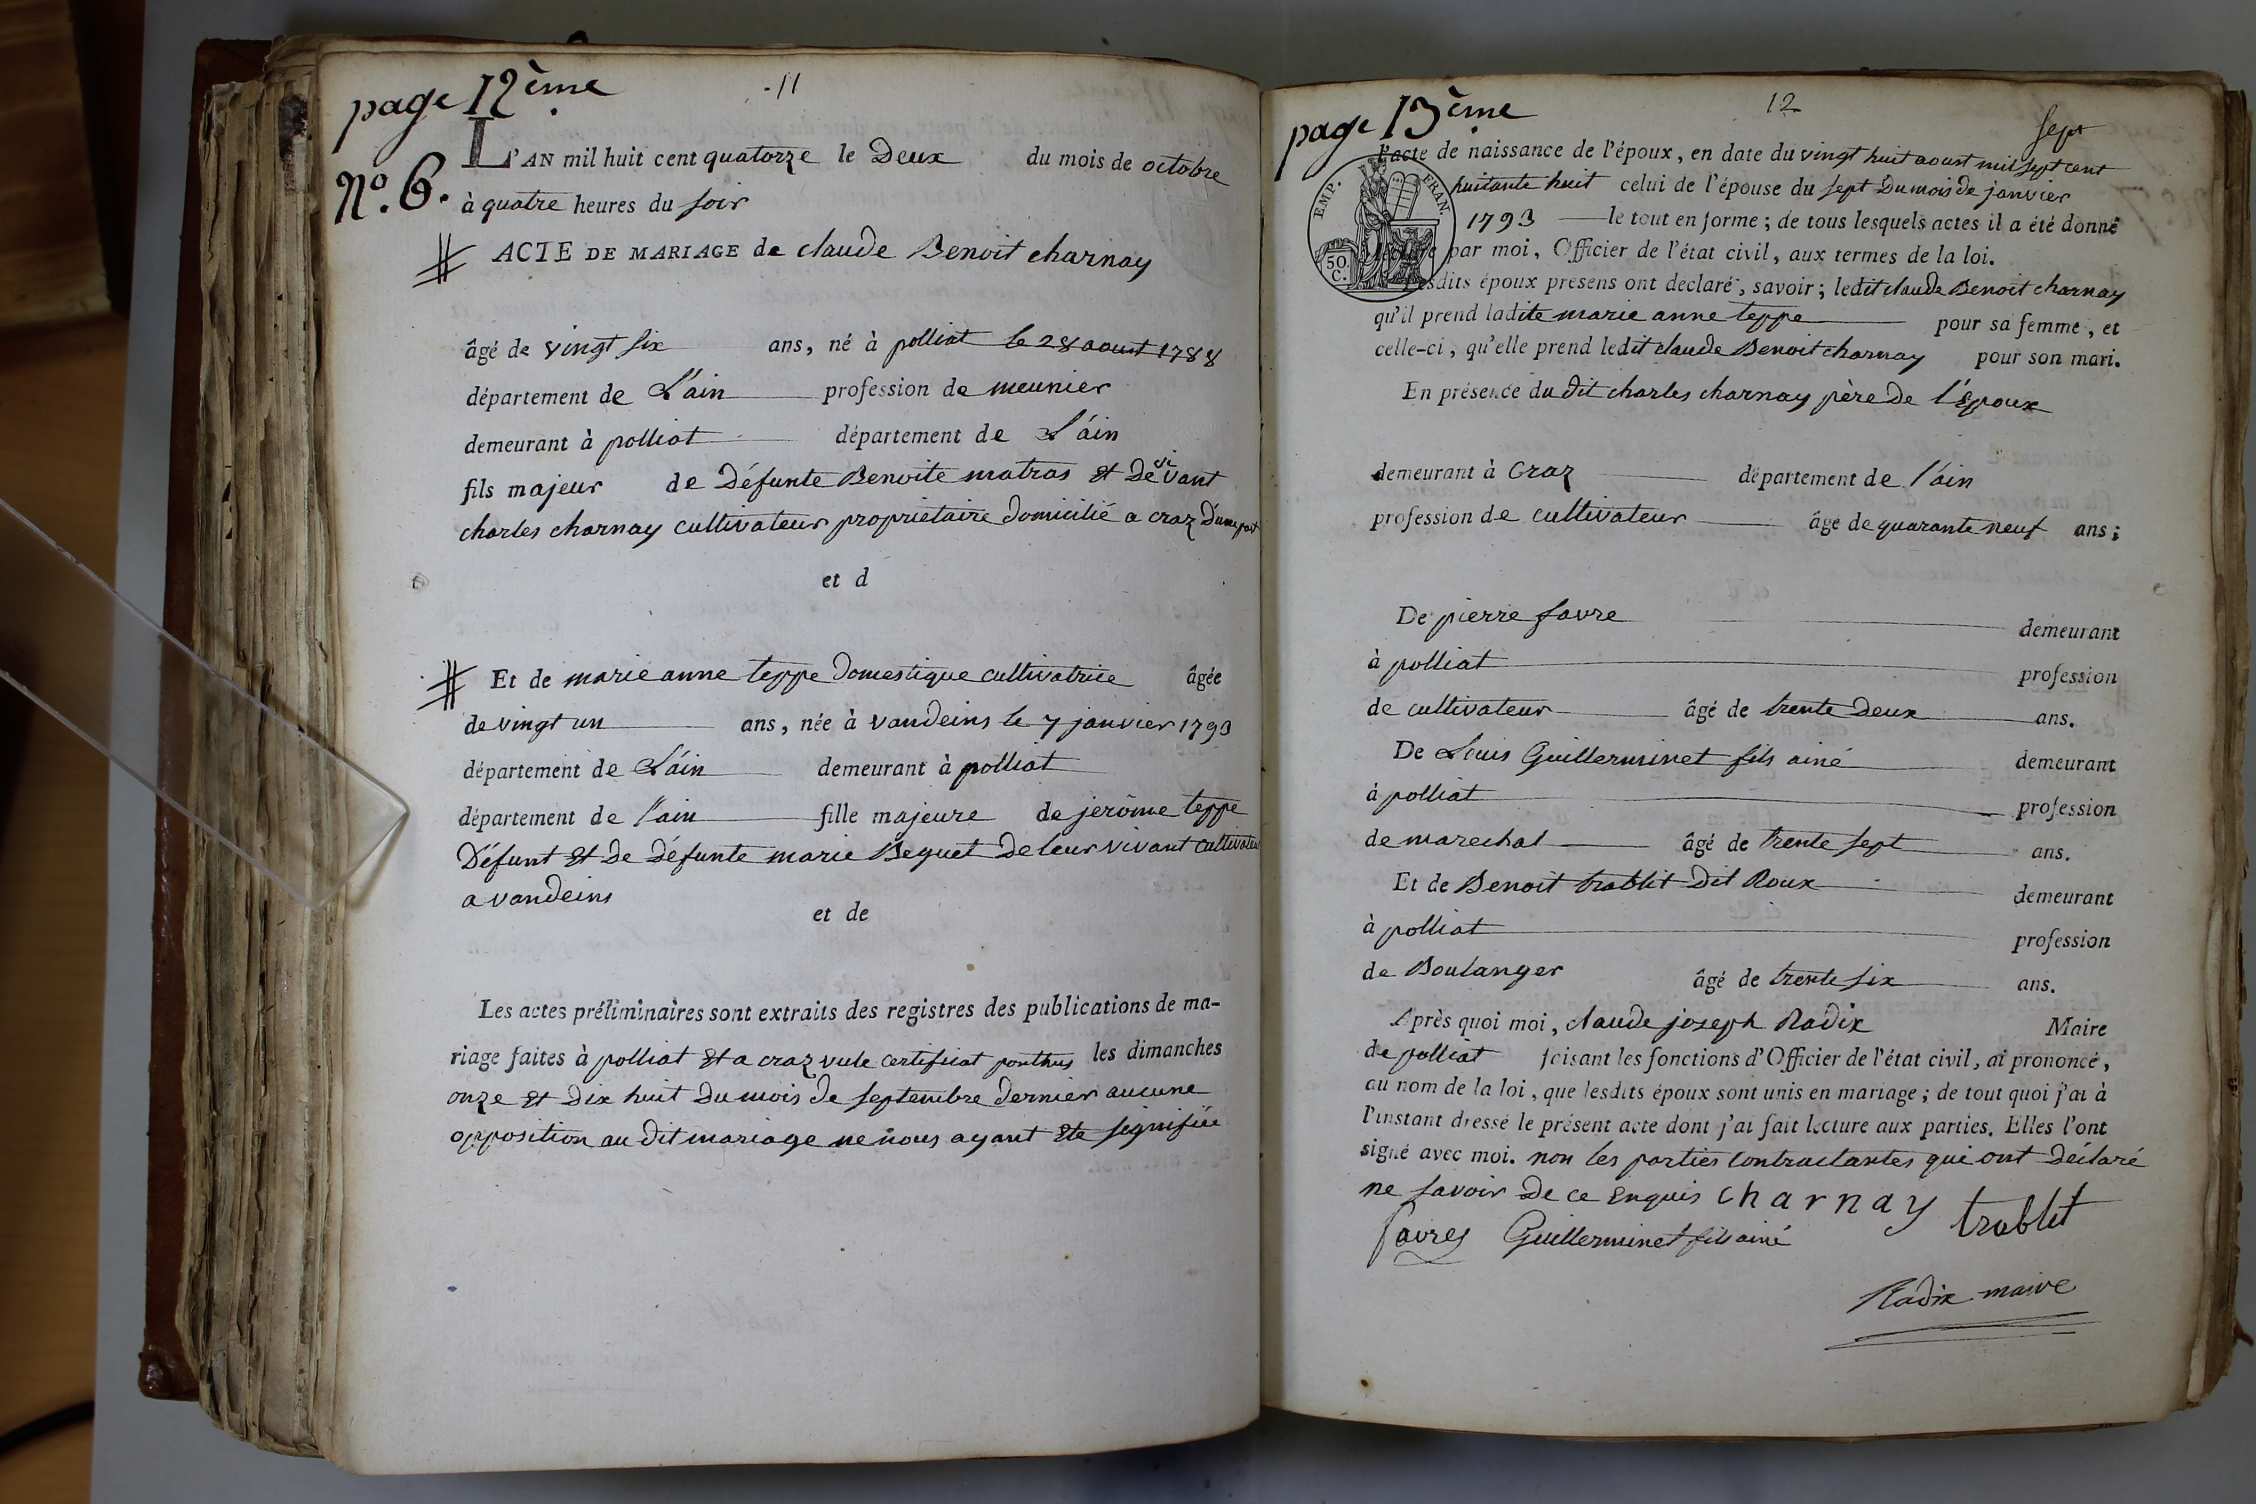 page 12ème
11
L'AN mil huit cent quatorze le Deux du mois de octobre
No. 6. à quatre heures du soir
ACTE DE MARIAGE de claude Benoit charnay
âgé de vingt six ans, né à polliat le 28 aoust 1788
département de L'ain profession de meunier
demeurant à polliat département de L'ain
fils majeur de Défunte Benoite matras et De vivant
charles charnay cultivateur propriétaire domicilié a craz D'une part
et d
Et de marie anne teppe Domestique cultivatrice âgée
de vingt un ans, née à vandeins le 7 janvier 1793
département de L'ain demeurant à polliat
département de l'ain fille majeure de jerôme teppe
Défunt et De défunte marie Bequet De leur vivant cultivateurs
a vandeins
et de
Les actes préliminaires sont extraits des registres des publications de ma-
riage faites à polliat et a craz vu le certificat ponthus les dimanches
onze et Dix huit Du mois De septembre dernier aucune
opposition au dit mariage ne nous ayant ete signifiée
page 13ème
12
sept
l'acte de naissance de l'époux, en date du vingt huit aoust mil sept cent
huitante huit celui de l'épouse du sept Du mois de janvier
1793 le tout en forme ; de tous lesquels actes il a été donné
par moi, Officier de l'état civil, aux termes de la loi.
EMP. FRAN.
50. C.
Lesdits époux présens ont déclaré, savoir ; ledit claude Benoit charnay
qu'il prend ladite marie anne teppe pour sa femme, et
celle-ci, qu'elle prend ledit claude Benoit charnay pour son mari.
En présence du dit charles charnay père De l'époux
demeurant à craz département de l'ain
profession de cultivateur âgé de quarante neuf ans ;
De pierre favre demeurant
à polliat profession
de cultivateur âgé de trente Deux ans.
De Louis Guillerminet fils ainé demeurant
à polliat profession
de marechal âgé de trente sept ans.
Et de Benoit trablit Dit Roux demeurant
à polliat profession
de Boulanger âgé de trente six ans.
Après quoi moi, claude joseph Radix Maire
de polliat faisant les fonctions d'Officier de l'état civil, ai prononcé,
au nom de la loi, que lesdits époux sont unis en mariage ; de tout quoi j'ai à
l'instant dressé le présent acte dont j'ai fait lecture aux parties. Elles l'ont
signé avec moi. non les parties contractantes qui ont déclaré
ne savoir De ce enquis charnay trablit
favre Guillerminet fils ainé
Radix maire